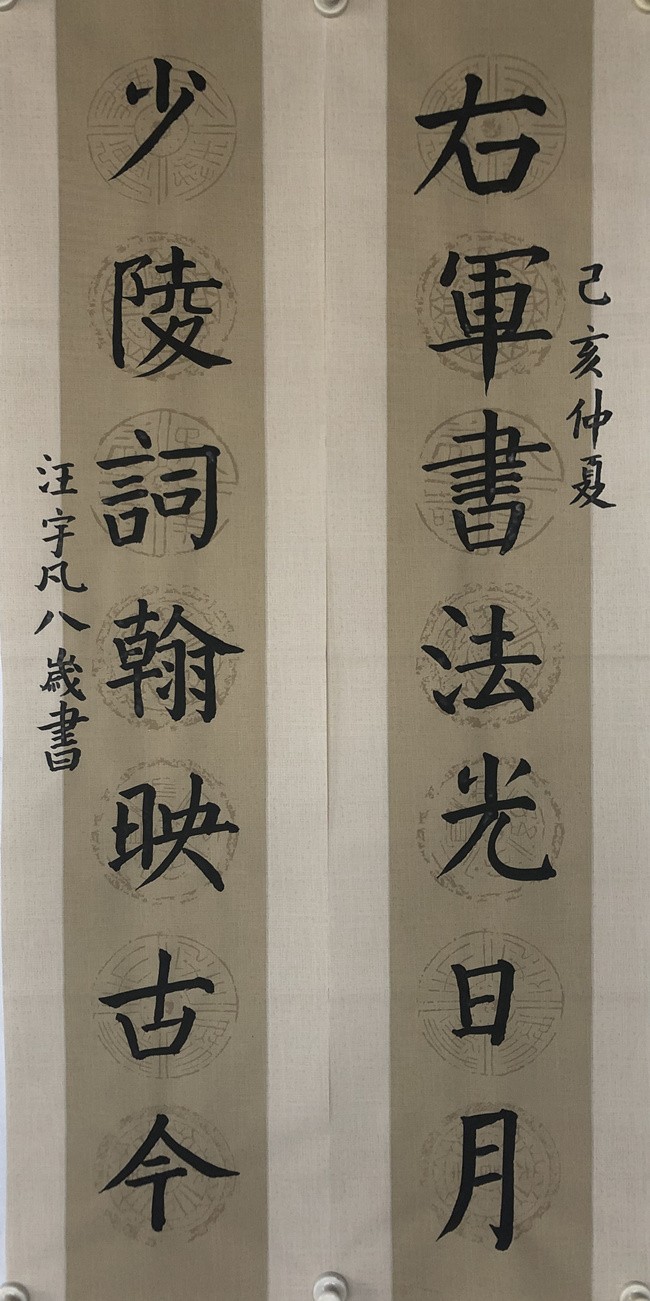 己亥仲夏
右軍書法光日月
少陵詞翰映古今
汪宇凡八歲書